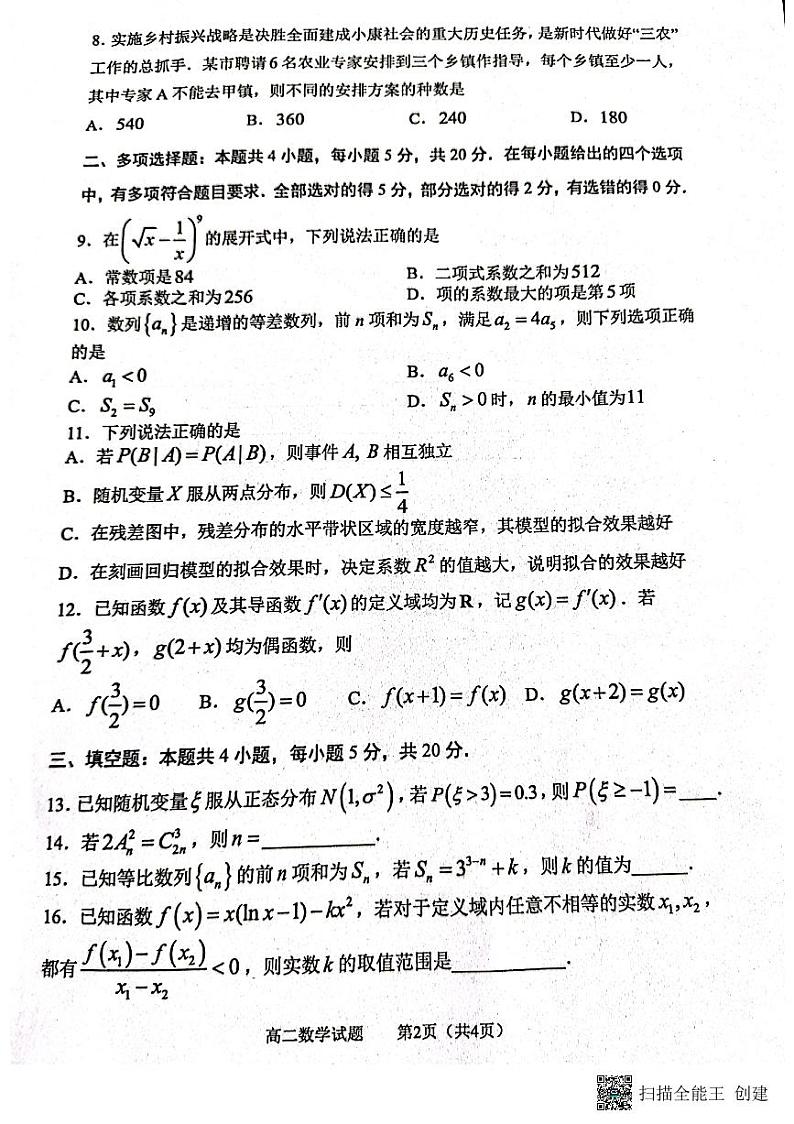 8. 实施乡村振兴战略是决胜全面建成小康社会的重大历史任务,是新时代做好“三农”
工作的总抓手. 某市聘请6名农业专家安排到三个乡镇作指导,每个乡镇至少一人,
其中专家A不能去甲镇,则不同的安排方案的种数是
A. 540 B. 360 C. 240 D. 180
二、多项选择题:本题共4小题,每小题5分,共20分. 在每小题给出的四个选项
中,有多项符合题目要求. 全部选对的得5分,部分选对的得2分,有选错的得0分.
9. 在(√x − 1/x)^9 的展开式中,下列说法正确的是
A. 常数项是84 B. 二项式系数之和为512
C. 各项系数之和为256 D. 项的系数最大的项是第5项
10. 数列{a_n}是递增的等差数列,前n项和为S_n,满足a_2 = 4a_5,则下列选项正确
的是
A. a_1 < 0 B. a_6 < 0
C. S_2 = S_9 D. S_n > 0时,n的最小值为11
11. 下列说法正确的是
A. 若P(B|A) = P(A|B),则事件A, B相互独立
B. 随机变量X服从两点分布,则D(X) ≤ 1/4
C. 在残差图中,残差分布的水平带状区域的宽度越窄,其模型的拟合效果越好
D. 在刻画回归模型的拟合效果时,决定系数R²的值越大,说明拟合的效果越好
12. 已知函数f(x)及其导函数f′(x)的定义域均为R,记g(x) = f′(x). 若
f(3/2 + x), g(2 + x)均为偶函数,则
A. f(3/2) = 0 B. g(3/2) = 0 C. f(x+1) = f(x) D. g(x+2) = g(x)
三、填空题:本题共4小题,每小题5分,共20分.
13. 已知随机变量ξ服从正态分布N(1, σ²),若P(ξ > 3) = 0.3,则P(ξ ≥ −1) = ____.
14. 若2A_n^2 = C_{2n}^3,则n = __________.
15. 已知等比数列{a_n}的前n项和为S_n,若S_n = 3^{3−n} + k,则k的值为_____.
16. 已知函数f(x) = x(ln x − 1) − kx²,若对于定义域内任意不相等的实数x_1, x_2,
都有 (f(x_1) − f(x_2))/(x_1 − x_2) < 0,则实数k的取值范围是__________.
高二数学试题 第2页(共4页)
扫描全能王 创建